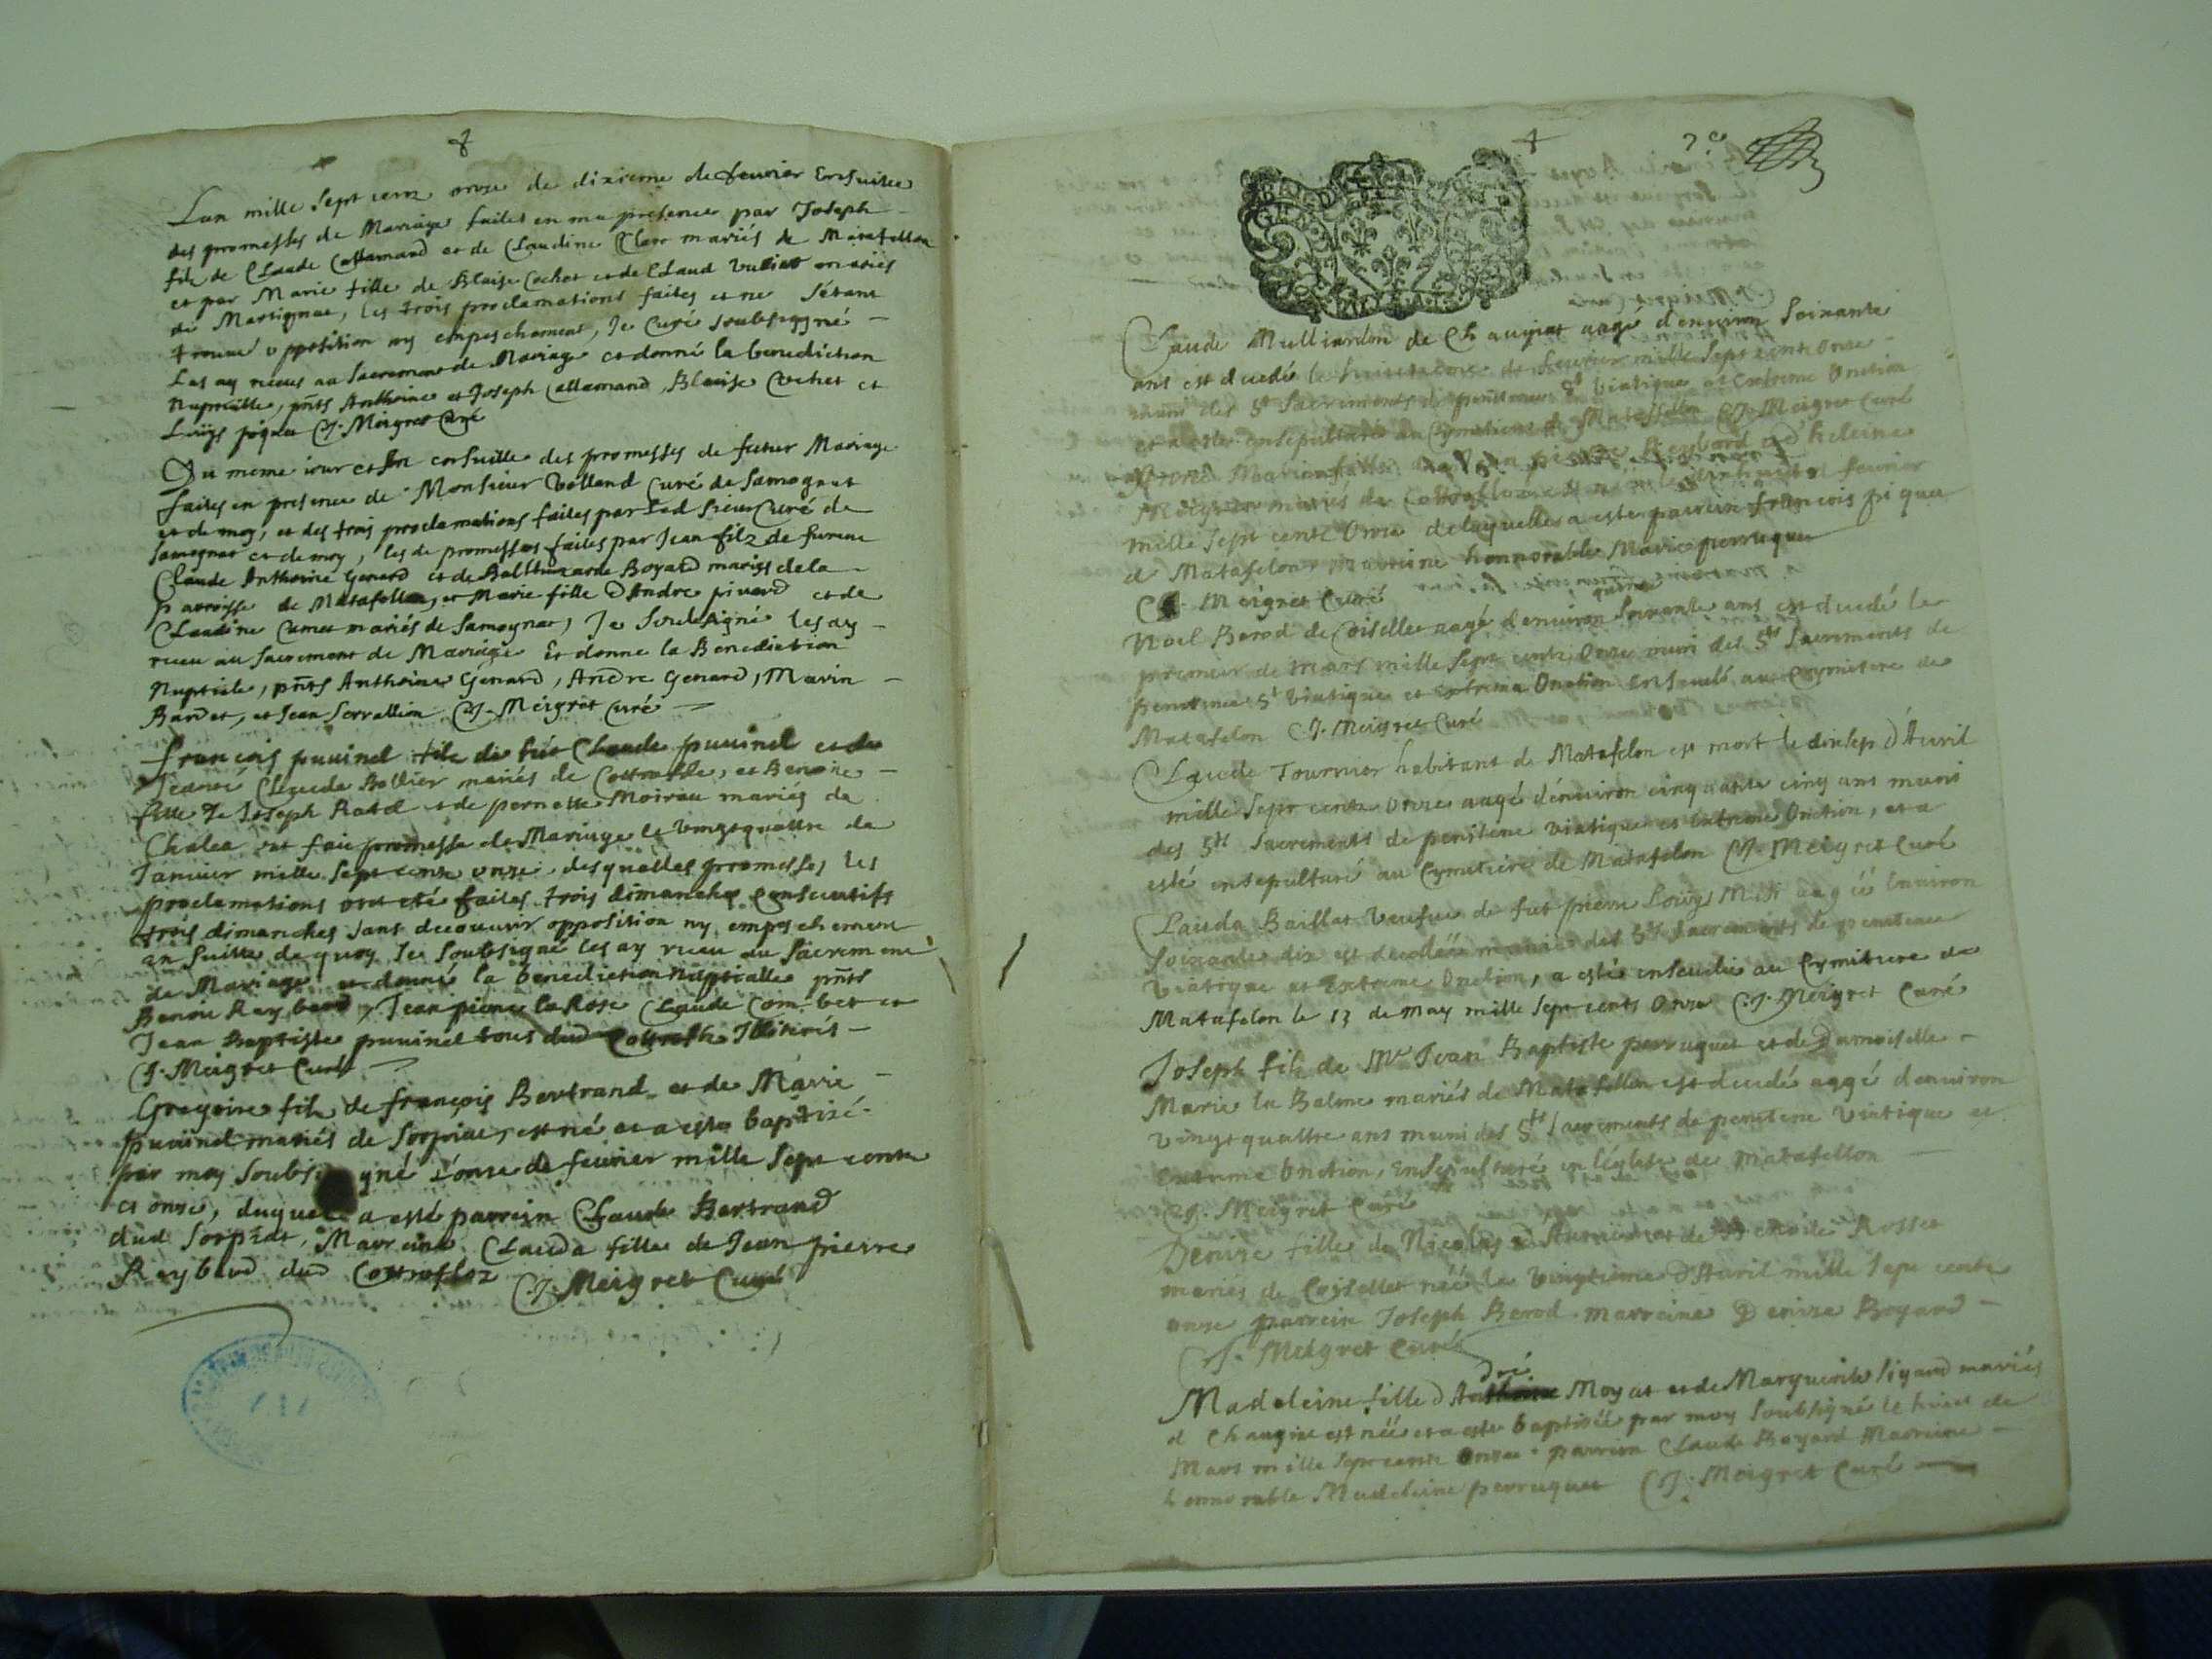 Lan mille sept cens onze de dixieme de feuvrier Ensuitte
des promesses de Mariage faites en ma presence par Joseph
filz de Claude Callamand et de Claudine Clerc mariés de Matafellon
et par Marie fille de Blaise Cochet et de Claud mariés
de Martignac, les trois proclamations faites et ne s'étant
trouvé opposition ny empeschement, Je Curé soubsigné
Les ay receus au Sacrement de Mariage et donné la benediction
Nuptialle, pñts Anthoine et Joseph Callamand, Blaise Cochet et
Louys piquet CJ. Meigret Curé
Du meme iour et en ensuitte des promesses de futur Mariage
faites en presence de Monsieur Volland Curé de Samognat
et de moy, et des trois proclamations faites par led sieur Curé de
Samognat et de moy, les de promesses faites par Jean filz de
Claude Anthoine Genard et de Balthazarde Boyard mariés de la
parroisse de Matafellon, et Marie fille D'Andre pivard et de
Claudine mariés de Samognat, Je Soubsigné les ay
receu au Sacrement de Mariage Et donne la Benediction
Nuptiale, pñts Anthoine Genard, Andre Genard, Marin
Bardet, et Jean Serrallion CJ. Meigret Curé
François puvinel filz de fut Claude puvinel et de
Jeanne Clauda Bollier mariés de Cottrofle, et Benoite
fille de Joseph Ratel et de pernette Moirau mariés de
Chalea ont fait promesse de Mariage le vingtquattre de
Januier mille sept cens onze desquelles promesses les
proclamations ont été faites trois dimanches consecutifs
trois dimanches sans decouurir opposition ny empeschement
en suitte de quoy Je Soubsigné les ay receu au Sacrement
de Mariage et donné la benediction nuptialle pñts
Benoit Raybaud, Jean pierre la Rose Claude Combet et
Jean Baptiste puvinel tous dud Cottrofle Illitirés
CJ. Meigret Curé
Gregoire filz de françois Bertrand et de Marie
puvinel mariés de Sorpiat, est né et a este baptizé
par moy soubsigné L'onze de feuvrier mille sept cents
et onze, duquel a esté parrein Claude Bertrand
dud Sorpiat, Marreine Clauda fille de Jean pierre
Raybaud dud Cottrofloz CJ. Meigret Curé
Claude Mulliardon de Chaugiat aagé d'enuiron Soixante
ans est decedé le de feuvrier mille sept cents onze
muni des Sts Sacrements de penitence St Viatique et Extreme Onction
et a este ensepulturé au Cymetiere de Matafellon CJ. Meigret Curé
Marie fille de Jean pierre Reybord et d'heleine
mariés de Cottrofloz feuvrier
mille sept cents Onze delaquelle a este parrein françois piquet
d Matafelon, marreine honnorable Marie perruquet
CJ. Meigret Curé
Noel Berod de Coiselles aagé denuiron Soixante quinze ans est decedé le
premier de mars mille sept cents Onze muni des Sts Sacrements de
Penitence St Viatique et Extreme Onction Enseueli au Cymitere de
Matafelon CJ. Meigret Curé
Claude Tournier habitant de Matafelon est mort le dixsep D'Auril
mille sept cents Onze aagé d'enuiron cinquante cinq ans muni
des Sts Sacrements de penitene Viatique et Extreme Onction, et a
esté ensepulturé au Cymetiere de Matafelon CJ. Meigret Curé
Clauda Baillat Veufue de fut pierre Louys aagéé Enuiron
Soixante dix est decedéé munie des Sts Sacrements de penitence
Viatique et Extreme Onction, a esté enseuelie au Cymitiere de
Matafelon le 13 de may mille sept cents Onze CJ. Meigret Curé
Joseph filz de Mr Jean Baptiste perruquet et de Damoiselle
Marie la Balme mariés de Matafellon est decedé aagé denuiron
Vingtquattre ans muni des Sts Sacrements de penitene Viatique et
Extreme Onction, Ensepulturé en l'église de Matafellon
CJ. Meigret Curé
Denize fille de Nicolas et de Rosset
mariés de Coiselles néé le Vingtieme D'Auril mille sept cents
onze parrein Joseph Berod marreine Denize Boyard
CJ. Meigret Curé
Madeleine fille D'André Moyat et de Marguerite Sigand mariés
d Chaugiat est néé et a este baptizéé par moy Soubsigné le huict de
Mars mille sept cents Onze parrein Claude Boyard Marreine
honnorable Madeleine perruquet CJ. Meigret Curé